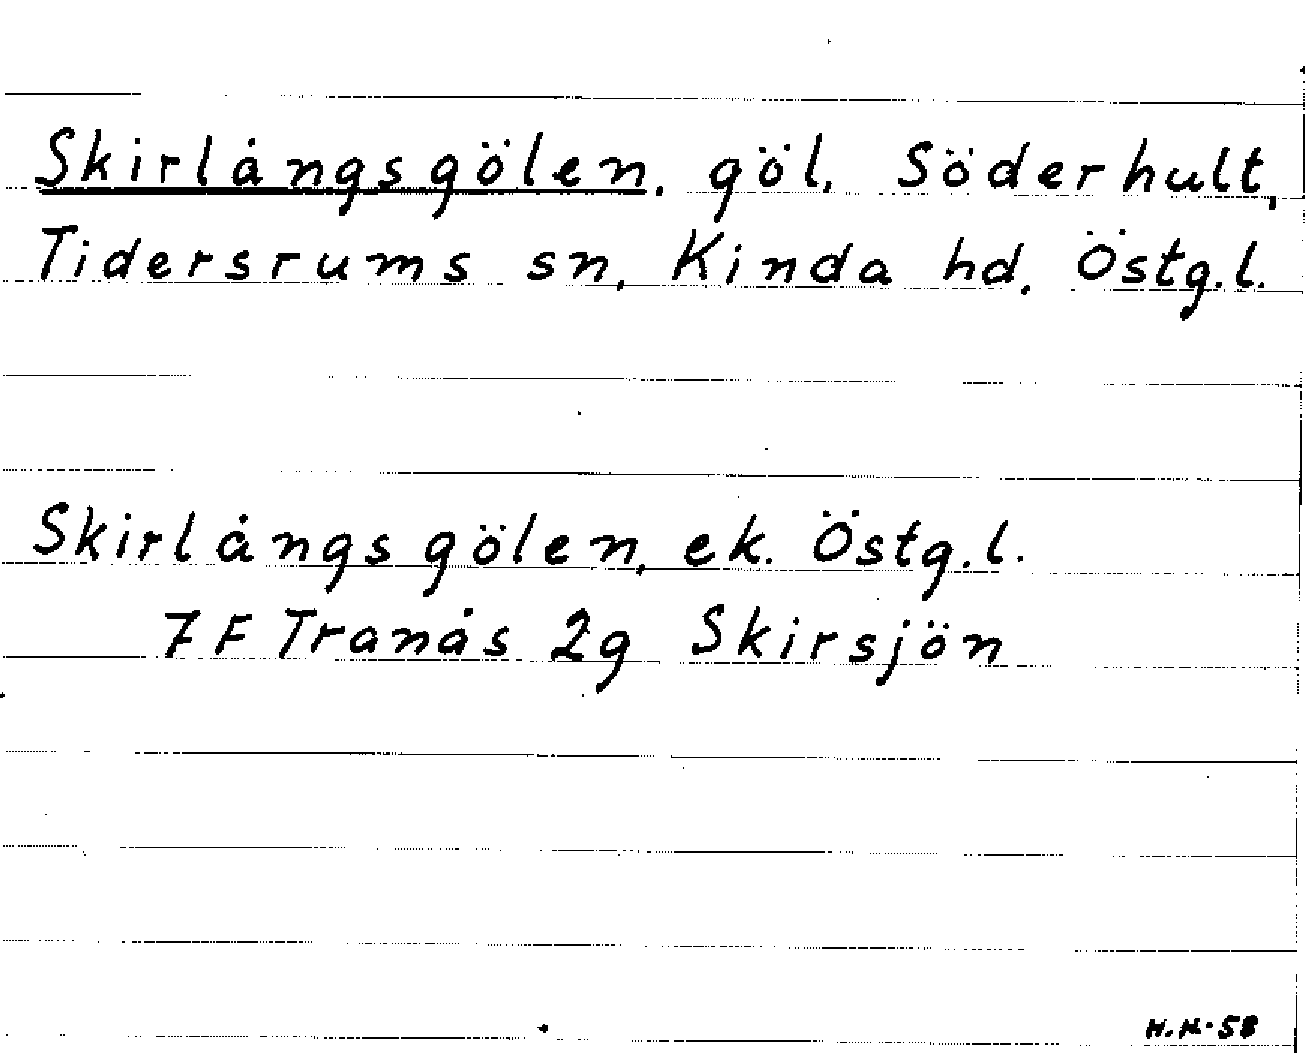 Skirlångsgölen, göl, Söderhult,
Tidersrums sn, Kinda hd, Östg.l.
Skirlångsgölen, ek. Östg.l.
7 F Tranås 2g Skirsjön